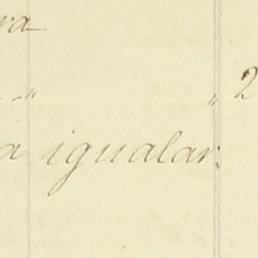 ra
" " 2
a igualar.